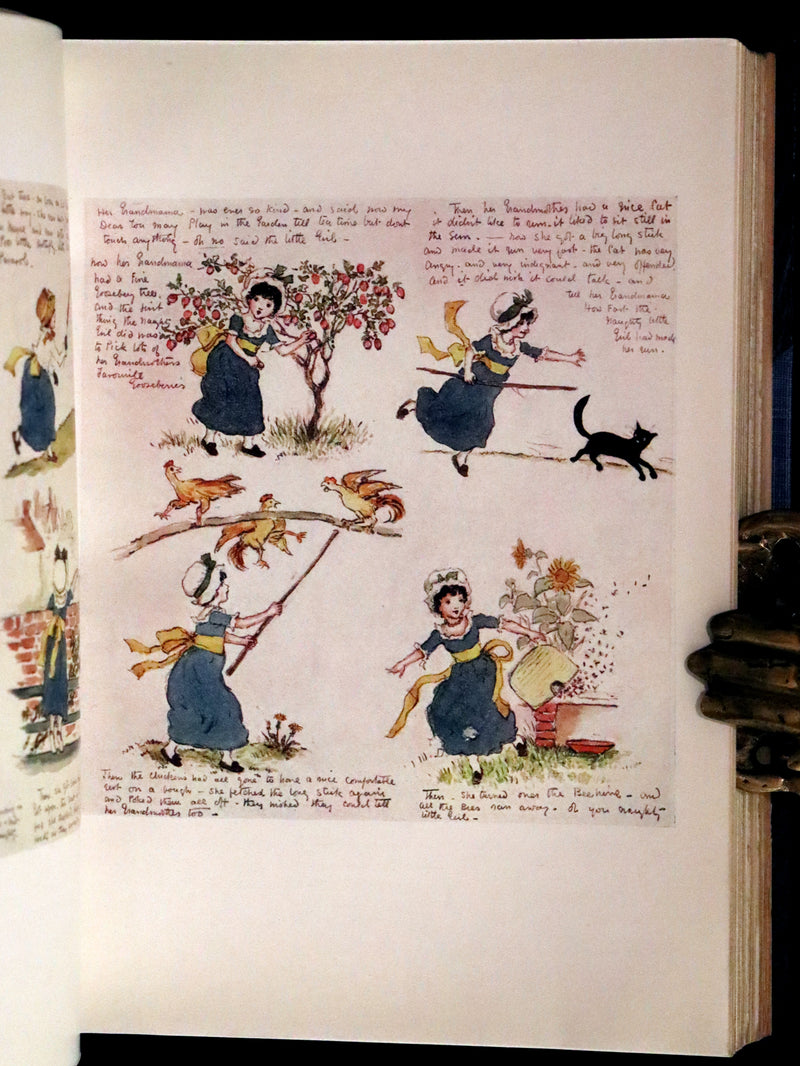 Her Grandmama - was ever so kind - and said, now my
Dear You may Play in the Garden till tea time but dont
touch anything - oh no said the little Girl -
now her Grandmama
had a Fine
Gooseberry tree,
and the first
thing the naughty
Girl did was
to Pick lots of
her Grandmothers
Favourite
Gooseberries
Then her Grandmother had a nice Cat
it didn't like to run. it liked to sit still in
the Sun. - now she got a big long stick
and made it run very fast - the Cat was very
angry. and very indignant. and very offended
and it did wish it could talk - and
tell her Grandmama
How Fast the
Naughty little
Girl had made
her run.
Then the Chickens had all gone to have a nice comfortable
rest on a bough - she fetched the long stick again
and Poked them all off - they wished they could tell
her Grandmother too -
Then - she turned over the Beehive - and
all the Bees ran away. oh you naughty
little Girl -